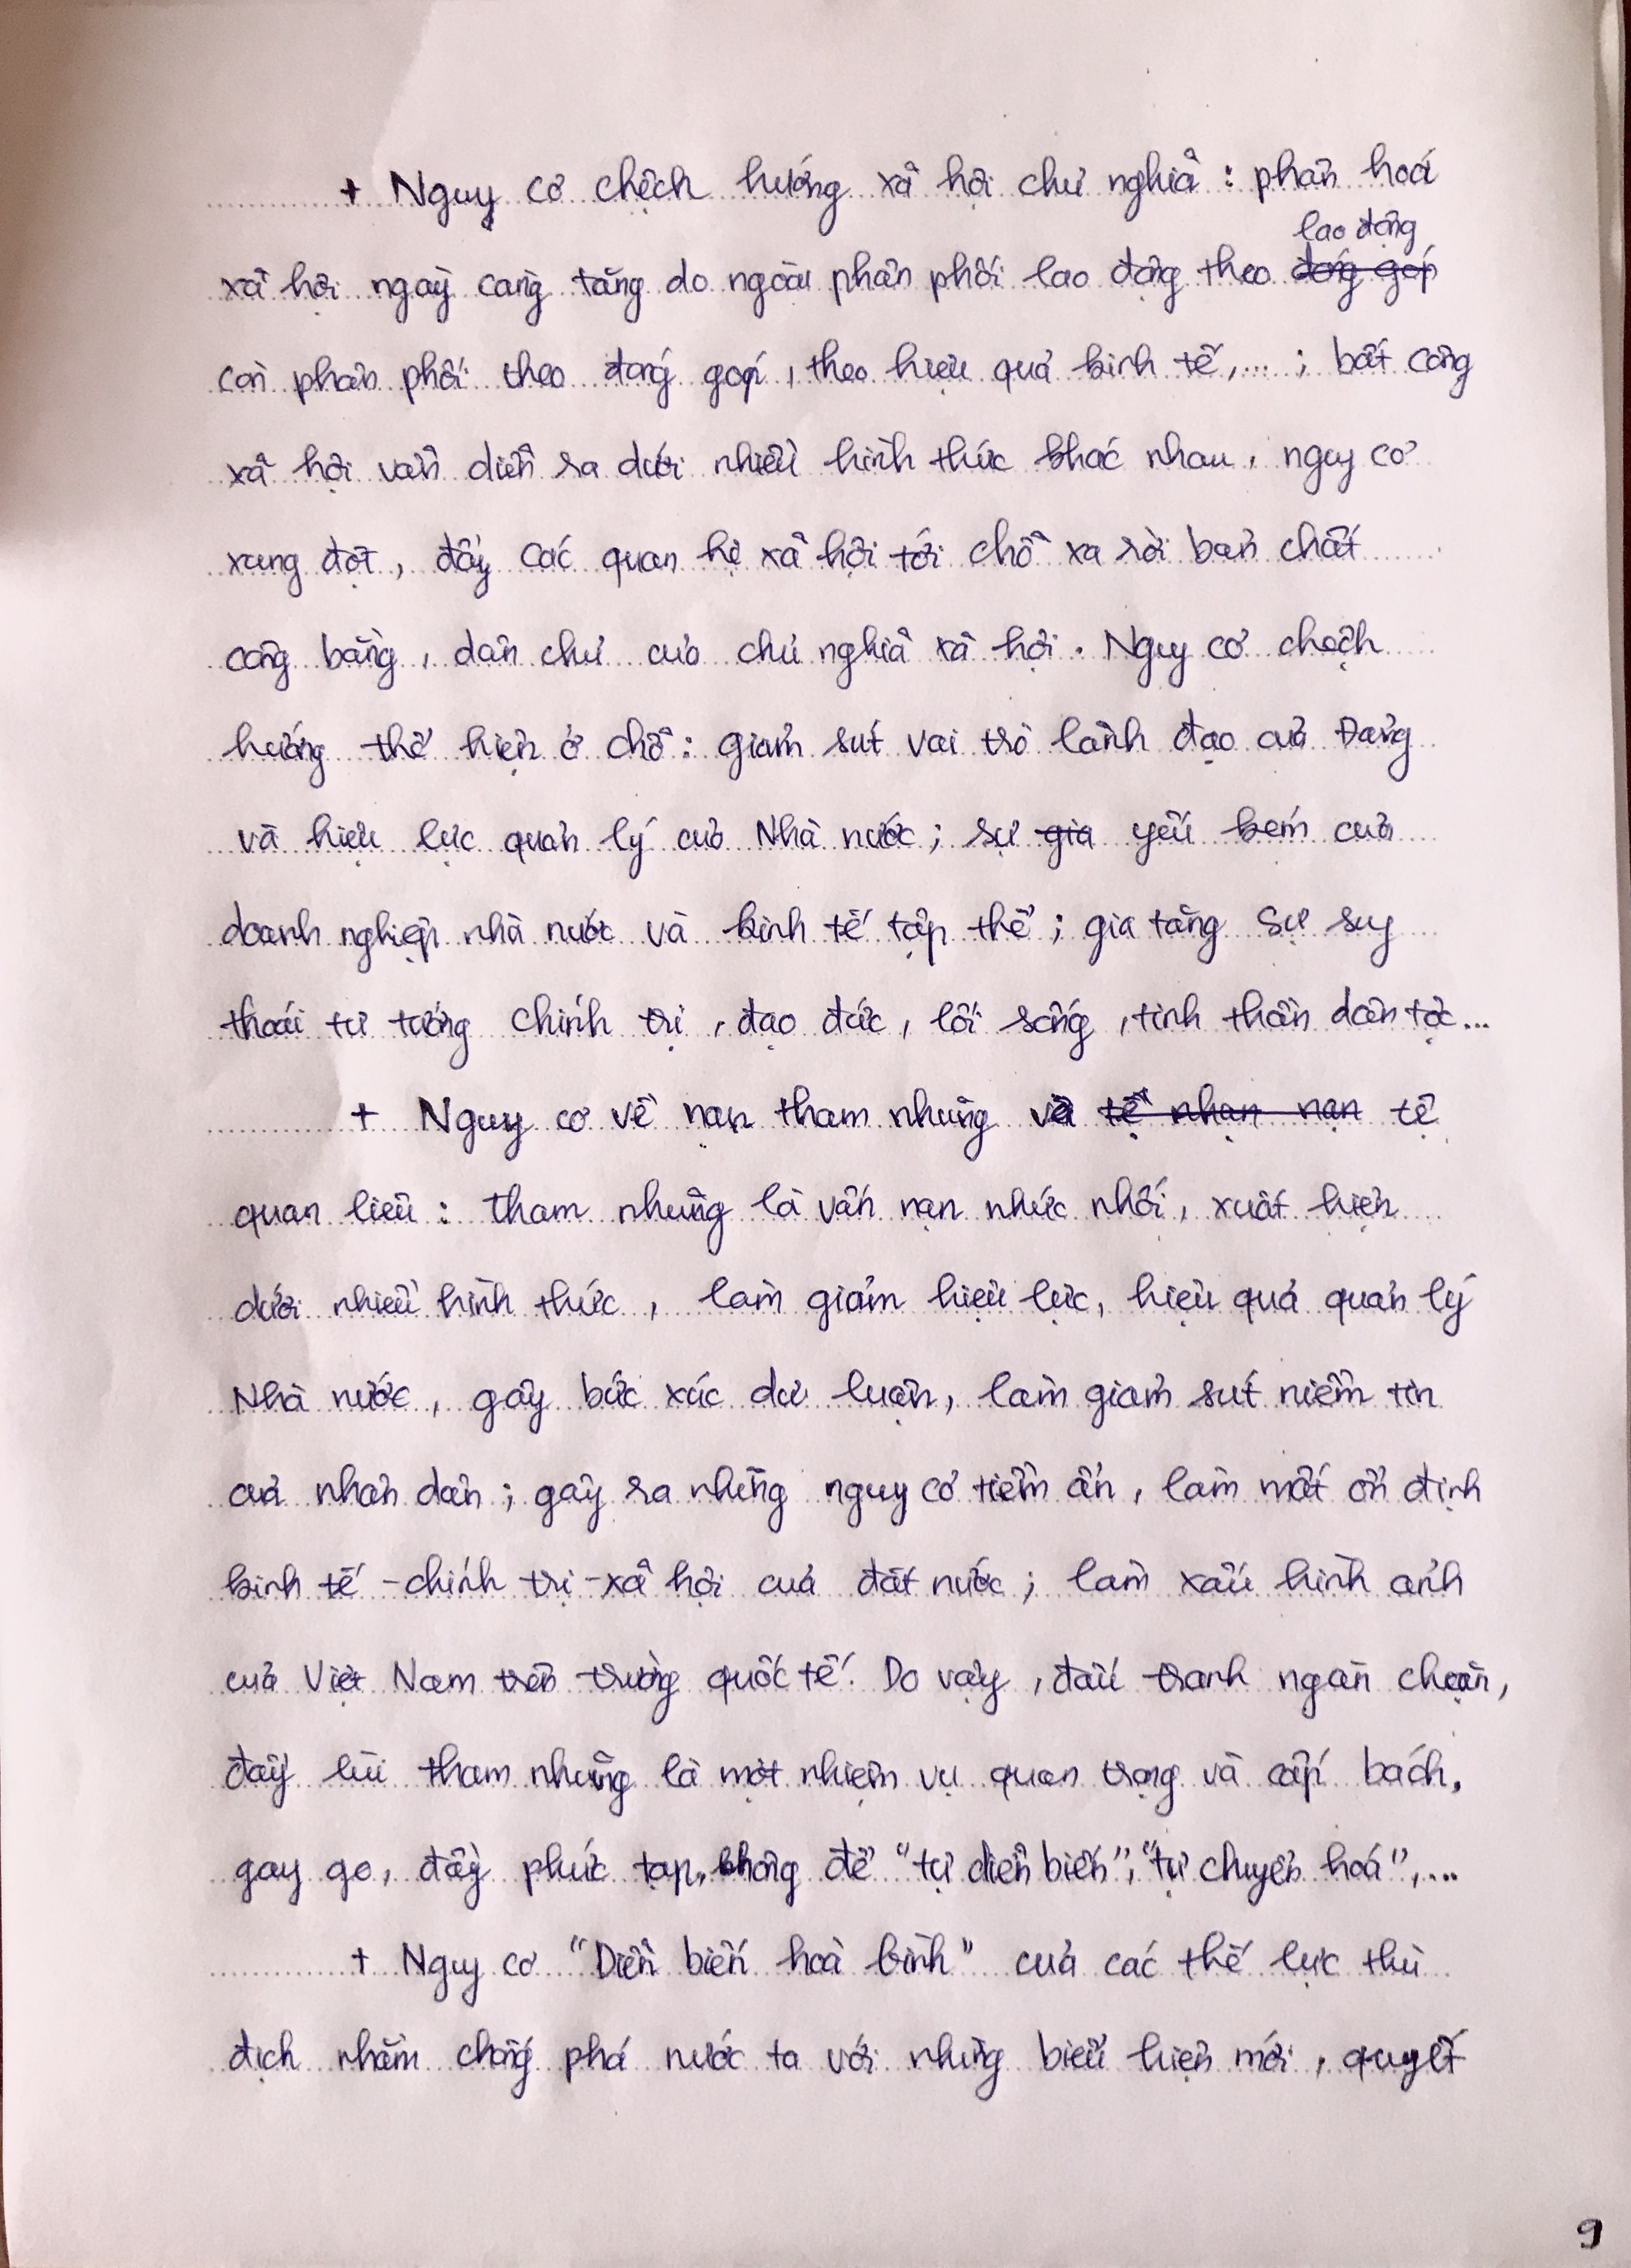 + Nguy cơ chệch hướng xã hội chủ nghĩa : phân hoá
lao động
xã hội ngày càng tăng do ngoài phân phối lao động theo đóng góp
còn phân phối theo đóng góp, theo hiệu quả kinh tế,... ; bất công
xã hội vẫn diễn ra dưới nhiều hình thức khác nhau, nguy cơ
xung đột, đẩy các quan hệ xã hội tới chỗ xa rời bản chất
công bằng, dân chủ của chủ nghĩa xã hội. Nguy cơ chệch
hướng thể hiện ở chỗ : giảm sút vai trò lãnh đạo của Đảng
và hiệu lực quản lý của Nhà nước ; sự gia yếu kém của
doanh nghiệp nhà nước và kinh tế tập thể ; gia tăng sự suy
thoái tư tưởng chính trị, đạo đức, lối sống, tinh thần dân tộc...
+ Nguy cơ về nạn tham nhũng và tệ nhạn nạn tệ
quan liêu : Tham nhũng là vấn nạn nhức nhối, xuất hiện
dưới nhiều hình thức, làm giảm hiệu lực, hiệu quả quản lý
Nhà nước, gây bức xúc dư luận, làm giảm sút niềm tin
của nhân dân ; gây ra những nguy cơ tiềm ẩn, làm mất ổn định
kinh tế - chính trị - xã hội của đất nước ; làm xấu hình ảnh
của Việt Nam trên trường quốc tế. Do vậy, đấu tranh ngăn chặn,
đẩy lùi tham nhũng là một nhiệm vụ quan trọng và cấp bách,
gay go, đầy phức tạp, không để "tự diễn biến", "tự chuyển hoá",...
+ Nguy cơ "Diễn biến hoà bình" của các thế lực thù
địch nhằm chống phá nước ta với những biểu hiện mới, quyết
9